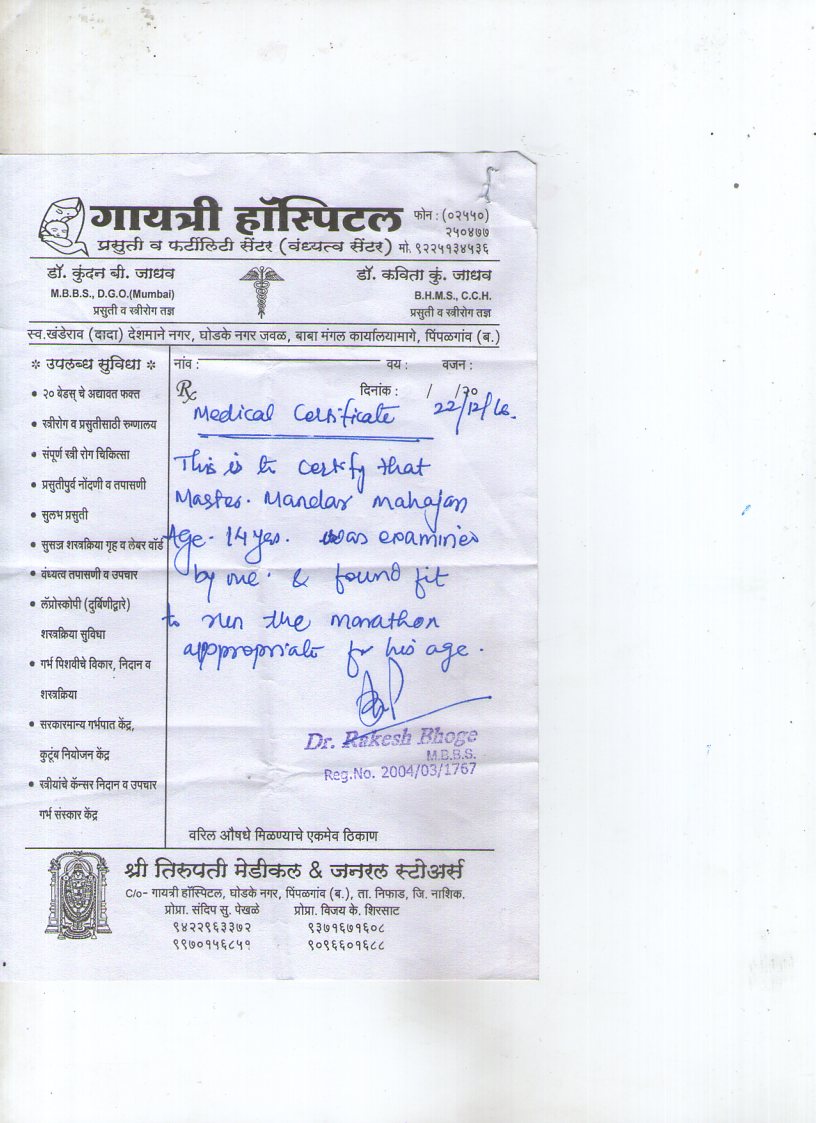 गायत्री हॉस्पिटल
फोन : (०२५५०)
२५०४७७
प्रसुती व फर्टीलिटी सेंटर (वंध्यत्व सेंटर) मो. ९२२५१३४५३६
डॉ. कुंदन बी. जाधव
M.B.B.S., D.G.O.(Mumbai)
प्रसुती व स्त्रीरोग तज्ञ
डॉ. कविता कुं. जाधव
B.H.M.S., C.C.H.
प्रसुती व स्त्रीरोग तज्ञ
स्व.खंडेराव (दादा) देशमाने नगर, घोडके नगर जवळ, बाबा मंगल कार्यालयामागे, पिंपळगांव (ब.)
* उपलब्ध सुविधा *
• २० बेडस् चे अद्यावत फक्त
• स्त्रीरोग व प्रसुतीसाठी रुग्णालय
• संपूर्ण स्त्री रोग चिकित्सा
• प्रसुतीपुर्व नोंदणी व तपासणी
• सुलभ प्रसुती
• सुसज्ज शस्त्रक्रिया गृह व लेबर वॉर्ड
• वंध्यत्व तपासणी व उपचार
• लॅप्रोस्कोपी (दुर्बिणीद्वारे)
शस्त्रक्रिया सुविधा
• गर्भ पिशवीचे विकार, निदान व
शस्त्रक्रिया
• सरकारमान्य गर्भपात केंद्र,
कुटूंब नियोजन केंद्र
• स्त्रीयांचे कॅन्सर निदान व उपचार
गर्भ संस्कार केंद्र
नांव : वय : वजन :
Rx दिनांक : / /२०
Medical Certificate 22/12/16.
This is to certify that
Master. Mandar Mahajan
Age. 14 yrs. was examined
by me. & found fit
to run the marathon
appropriate for his age.
Dr. Rakesh Bhoge
M.B.B.S.
Reg.No. 2004/03/1767
वरिल औषधे मिळण्याचे एकमेव ठिकाण
श्री तिरुपती मेडीकल & जनरल स्टोअर्स
C/o- गायत्री हॉस्पिटल, घोडके नगर, पिंपळगांव (ब.), ता. निफाड, जि. नाशिक.
प्रोप्रा. संदिप सु. पेखळे प्रोप्रा. विजय के. शिरसाट
९४२२९६३३७२ ९३७१६७१६०८
९९७०१५६८५१ ९०९६६०१६८८